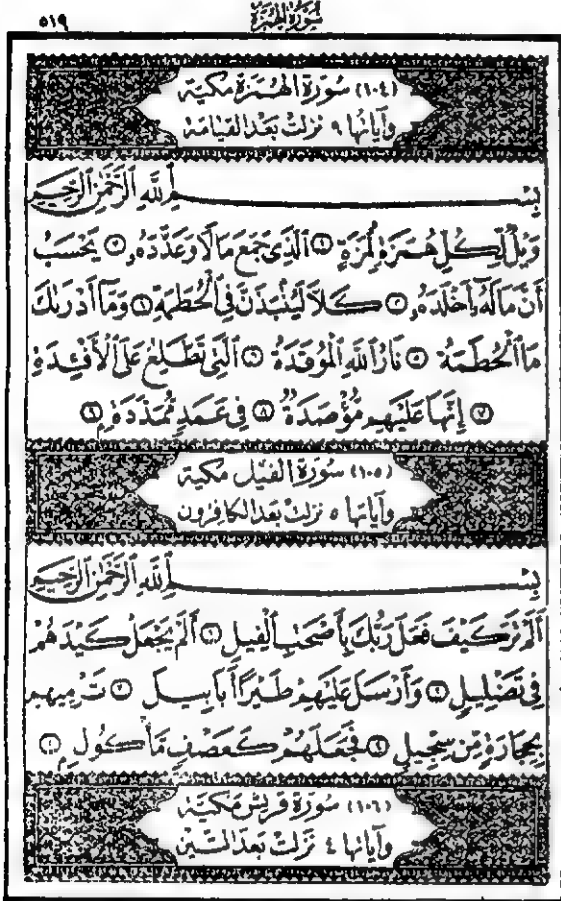 ٥١٩
سُورَةُ الهُمَزَةِ
(١٠٤) سُورَةِ الهُمَزَةِ مَكِيَّة
وَآيَاتُهَا ٩ نَزَلَتْ بَعْدَ القِيَامَةِ
بِسْمِ ٱللَّهِ ٱلرَّحْمَٰنِ ٱلرَّحِيمِ
وَيْلٌ لِّكُلِّ هُمَزَةٍ لُّمَزَةٍ ١ ٱلَّذِى جَمَعَ مَالًا وَعَدَّدَهُۥ ٢ يَحْسَبُ
أَنَّ مَالَهُۥٓ أَخْلَدَهُۥ ٣ كَلَّا لَيُنۢبَذَنَّ فِى ٱلْحُطَمَةِ ٤ وَمَآ أَدْرَىٰكَ
مَا ٱلْحُطَمَةُ ٥ نَارُ ٱللَّهِ ٱلْمُوقَدَةُ ٦ ٱلَّتِى تَطَّلِعُ عَلَى ٱلْأَفْـِٔدَةِ
٧ إِنَّهَا عَلَيْهِم مُّؤْصَدَةٌ ٨ فِى عَمَدٍ مُّمَدَّدَةٍۭ ٩
(١٠٥) سُورَةِ الفِيلِ مَكِيَّة
وَآيَاتُهَا ٥ نَزَلَتْ بَعْدَ الكَافِرُون
بِسْمِ ٱللَّهِ ٱلرَّحْمَٰنِ ٱلرَّحِيمِ
أَلَمْ تَرَ كَيْفَ فَعَلَ رَبُّكَ بِأَصْحَٰبِ ٱلْفِيلِ ١ أَلَمْ يَجْعَلْ كَيْدَهُمْ
فِى تَضْلِيلٍ ٢ وَأَرْسَلَ عَلَيْهِمْ طَيْرًا أَبَابِيلَ ٣ تَرْمِيهِم
بِحِجَارَةٍ مِّن سِجِّيلٍ ٤ فَجَعَلَهُمْ كَعَصْفٍ مَّأْكُولٍۭ ٥
(١٠٦) سُورَةِ قُرَيْش مَكِيَّة
وَآيَاتُهَا ٤ نَزَلَتْ بَعْدَ التِّين